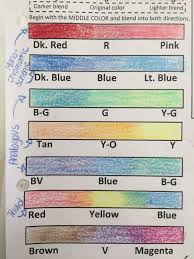 Darker blend Original color Lighter blend
Begin with the MIDDLE COLOR and blend into both directions
Dk. Red R Pink
Dk. Blue Blue Lt. Blue
B-G G Y-G
Tan Y-O Y
BV Blue B-G
Red Yellow Blue
Brown V Magenta